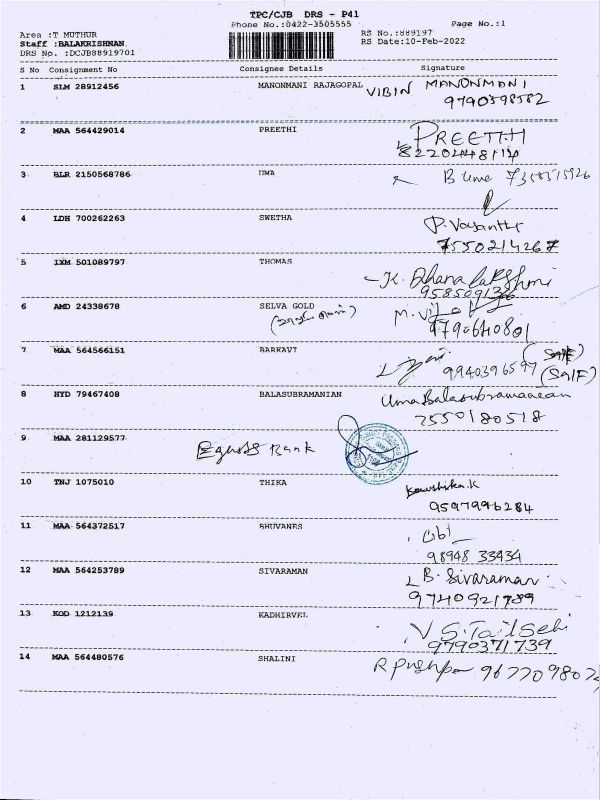 TPC/CJB DRS - P41
Phone No.:0422-3505555
Page No.:1
Area :T MUTHUR
RS No.:889197
Staff :BALAKRISHNAN
RS Date:10-Feb-2022
DRS No. :DCJB88919701
S No Consignment No Consignee Details Signature
1 SLM 28912456 MANONMANI RAJAGOPAL VIBIN MANONMANI
9790398582
2 MAA 564429014 PREETHI PREETHI
8220448114
3 BLR 2150568786 UMA B Uma
4 LDH 700262263 SWETHA P. Vasanthi
7550214267
5 IXM 501089797 THOMAS K. Dhanalakshmi
9585091336
6 AMD 24338678 SELVA GOLD M.
9790640801
7 MAA 564566151 BARKAVI 9940396597 (SAIF)
8 HYD 79467408 BALASUBRAMANIAN Uma Balasubramanean
7550180518
9 MAA 281129577 Equitas Bank
10 TNJ 1075010 THIKA Kaushika.K
9597996284
11 MAA 564372517 BHUVANES
98948 33434
12 MAA 564253789 SIVARAMAN B. Sivaraman
9740921789
13 KOD 1212139 KADHIRVEL
9790371739
14 MAA 564480576 SHALINI R Pushpa